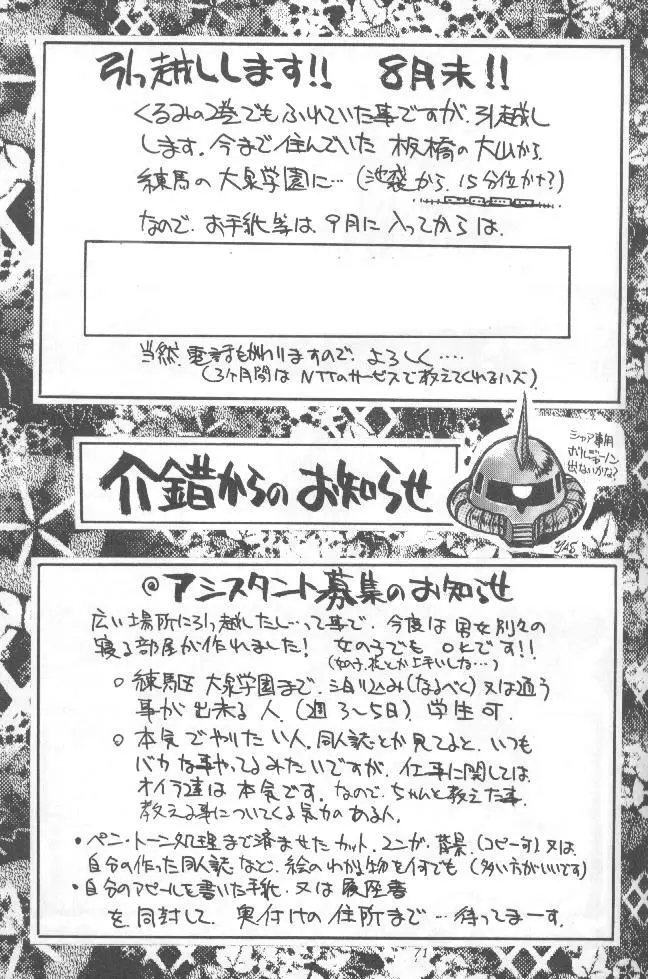 引っ越しします!! 8月末!!
くるみの2巻でもふれていた事ですが、引越し
します。今まで住んでいた 板橋の大山から、
練馬の大泉学園に… (池袋から、15分位かナ?)
なので、お手紙等は、9月に入ってからは、
当然、電話もかわりますので、よろしく‥‥
(3ヶ月間は NTTのサービスで教えてくれるハズ)
介錯からのお知らせ
シャア専用
ポリゴ
出ないかな?
◎アシスタント募集のお知らせ
広い場所に引っ越したし…って事で、今度は男女別々の
寝る部屋が作れました! 女の子でも OKです!!
(女の子、花とか上手いしね…)
○ 練馬区 大泉学園まで、泊り込み(なるべく)又は通う
事が出来る人。(週3〜5日) 学生可。
○ 本気でやりたい人。同人誌とか見てると、いつも
バカな事やってるみたいですが、仕事に関しては
オイラ達は本気です。なので、ちゃんと教えた事、
教える事についてくる気力のある人。
・ペン・トーン処理まで済ませたカット、マンガ、背景、(コピー可)又は、
自分の作った同人誌など、絵のわかる物を何でも (多い方がいいです)
・自分のアピールを書いた手紙・又は履歴書
を同封して、奥付けの住所まで…待ってまーす。
71